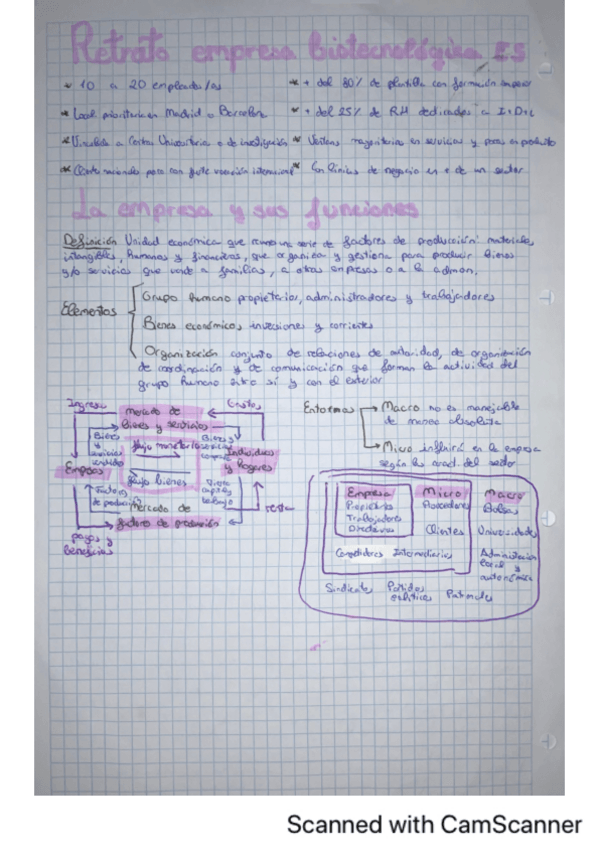 Retrato empresa biotecnológica ES
* 10 a 20 empleados/as
* + del 80% de plantilla con formación superior
* Local prioritario en Madrid o Barcelona
* + del 25% de RH dedicados a I+D+i
* Vinculada a Centros Universitarios o de investigación
* Ventas mayoritarias en servicios y pocas en producto
* Cliente nacional pero con fuerte vocación internacional
* Con líneas de negocio en + de un sector
La empresa y sus funciones
Definición Unidad económica que reúne una serie de factores de producción: materiales,
intangibles, humanos y financieros, que organiza y gestiona para producir bienes
y/o servicios que vende a familias, a otras empresas o a la admon.
Elementos
Grupo humano propietarios, administradores y trabajadores
Bienes económicos, inversiones y corrientes
Organización conjunto de relaciones de autoridad, de organización
de coordinación y de comunicación que forman la actividad del
grupo humano entre sí y con el exterior
Ingreso
Mercado de
bienes y servicios
Gastos
Bienes
y
servicios
vendidos
flujo monetario
Bienes y
servicios
comprados
Individuos
y hogares
Empresas
flujo bienes
factores
de producción
Tierra
capital y
trabajo
Mercado de
factores de producción
renta
pagos y
beneficios
Entornos
Macro no es manejable
de manera absoluta
Micro influirá en la empresa
según las caract. del sector
Empresa
Propietarios
Trabajadores
Directivos
Micro
Proveedores
Clientes
Competidores Intermediarios
Macro
Bolsas
Universidades
Administración
local y
autonómica
Sindicatos
Partidos
políticos
Patronales
Scanned with CamScanner